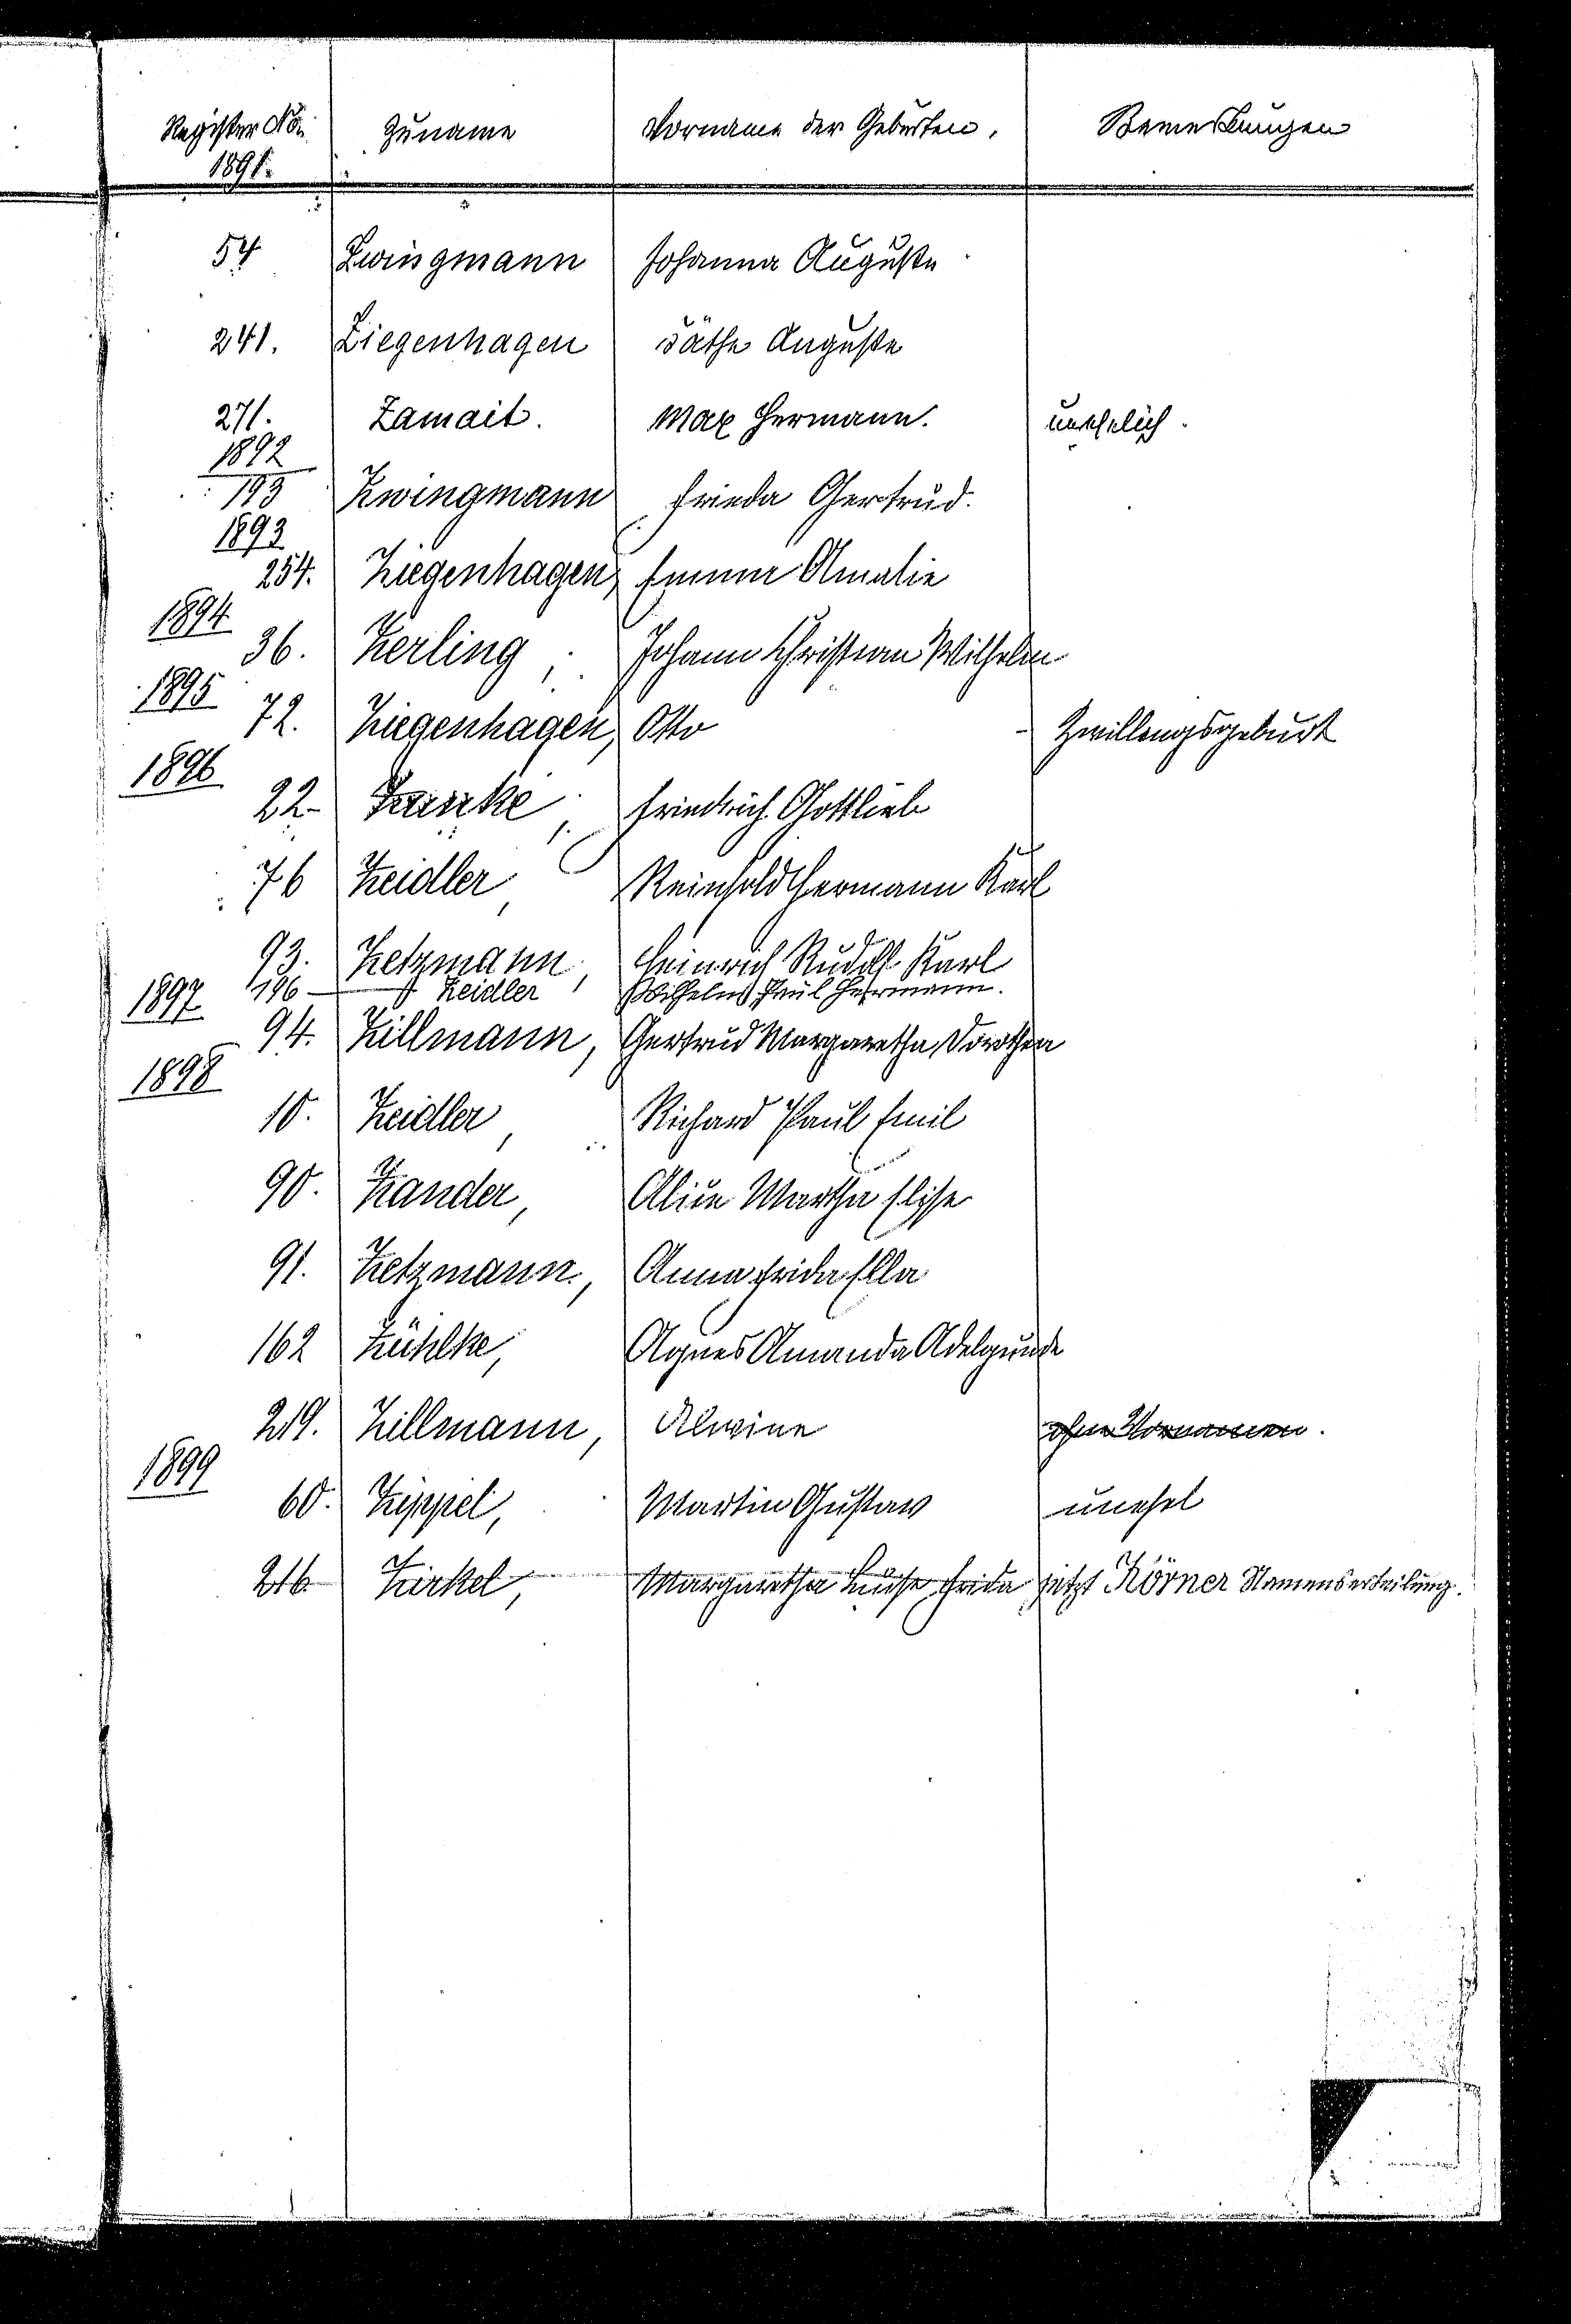 Register No: Zuname Vorname der Geburten. Bemerkungen
1891.
54 Zwingmann Johanna Auguste
241. Ziegenhagen Käthe Auguste
271. Zamait. Max Hermann. unehelich.
1892
193 Zwingmann Frieda Gertrud.
1893
254. Ziegenhagen, Emma Amalie
1894
36. Zerling, Johann Christian Wilhelm
1895
72. Ziegenhagen, Otto - Zwillingsgeburt
1896
22- Friedrich Gottlieb
76 Zeidler, Reinhold Hermann Karl
93. Zetzmann, Heinrich Rudolf Karl
196 - Zeidler Wilhelm Paul Hermann.
1897
94. Zillmann, Gertrud Margaretha Dorothea
1898
10. Zeidler, Richard Paul Emil
90. Zander, Alice Martha Elise
91. Zetzmann, Anna Frida Ella
162 Zühlke, Agnes Amanda Adelgunde
219. Zillmann, Alwine ohne Vornamen.
1899
60. Zippel, Martin Gustav unehel
216 Zirkel, Margaretha Luise Frida jetzt Körner Namenserteilung.